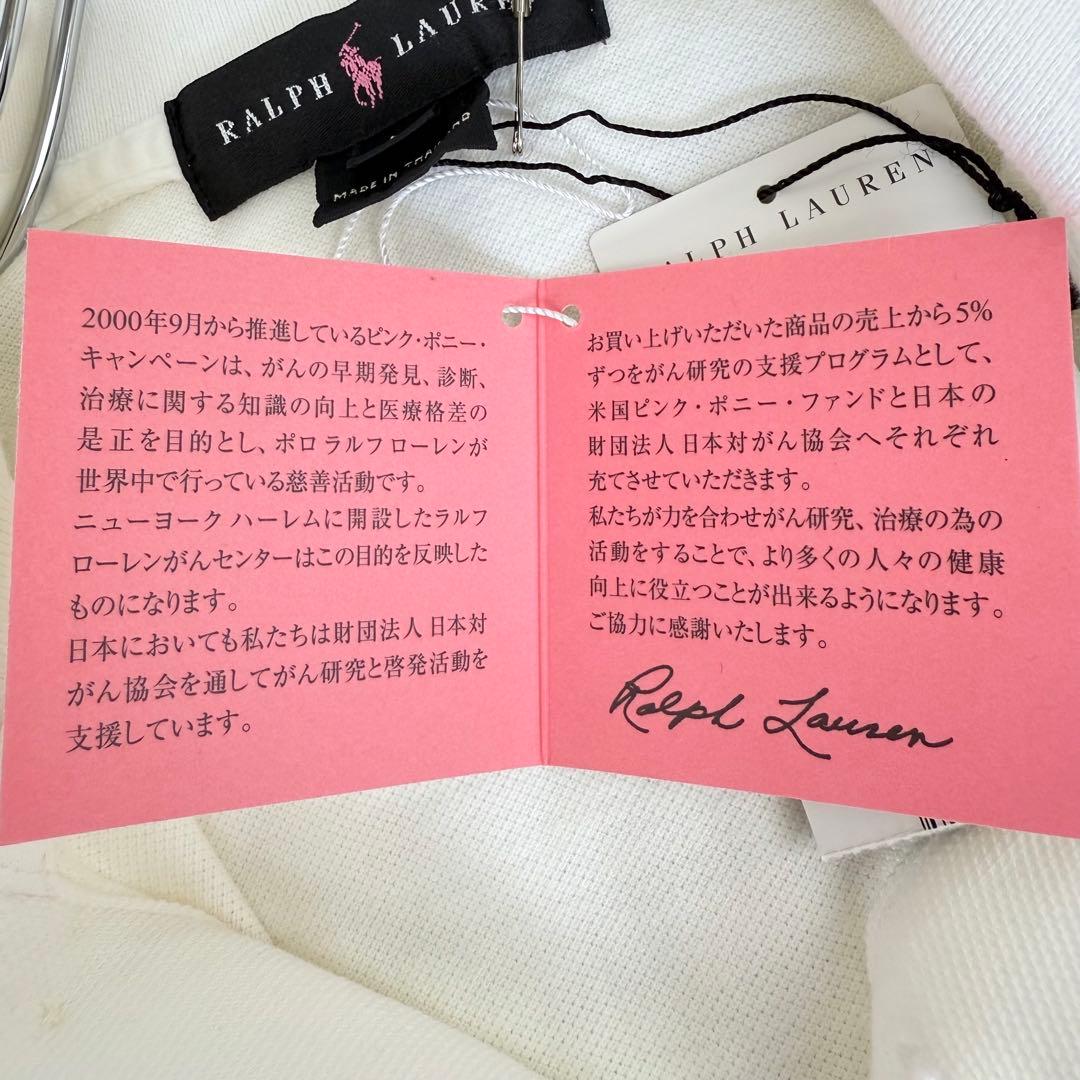 RALPH LAUREN
MADE IN THAILAND
RALPH LAUREN
2000年9月から推進しているピンク・ポニー・
キャンペーンは、がんの早期発見、診断、
治療に関する知識の向上と医療格差の
是正を目的とし、ポロ ラルフ ローレンが
世界中で行っている慈善活動です。
ニューヨーク ハーレムに開設したラルフ
ローレンがんセンターはこの目的を反映した
ものになります。
日本においても私たちは財団法人 日本対
がん協会を通してがん研究と啓発活動を
支援しています。
お買い上げいただいた商品の売上から5%
ずつをがん研究の支援プログラムとして、
米国ピンク・ポニー・ファンドと日本の
財団法人 日本対がん協会へそれぞれ
充てさせていただきます。
私たちが力を合わせがん研究、治療の為の
活動をすることで、より多くの人々の健康
向上に役立つことが出来るようになります。
ご協力に感謝いたします。
Ralph Lauren